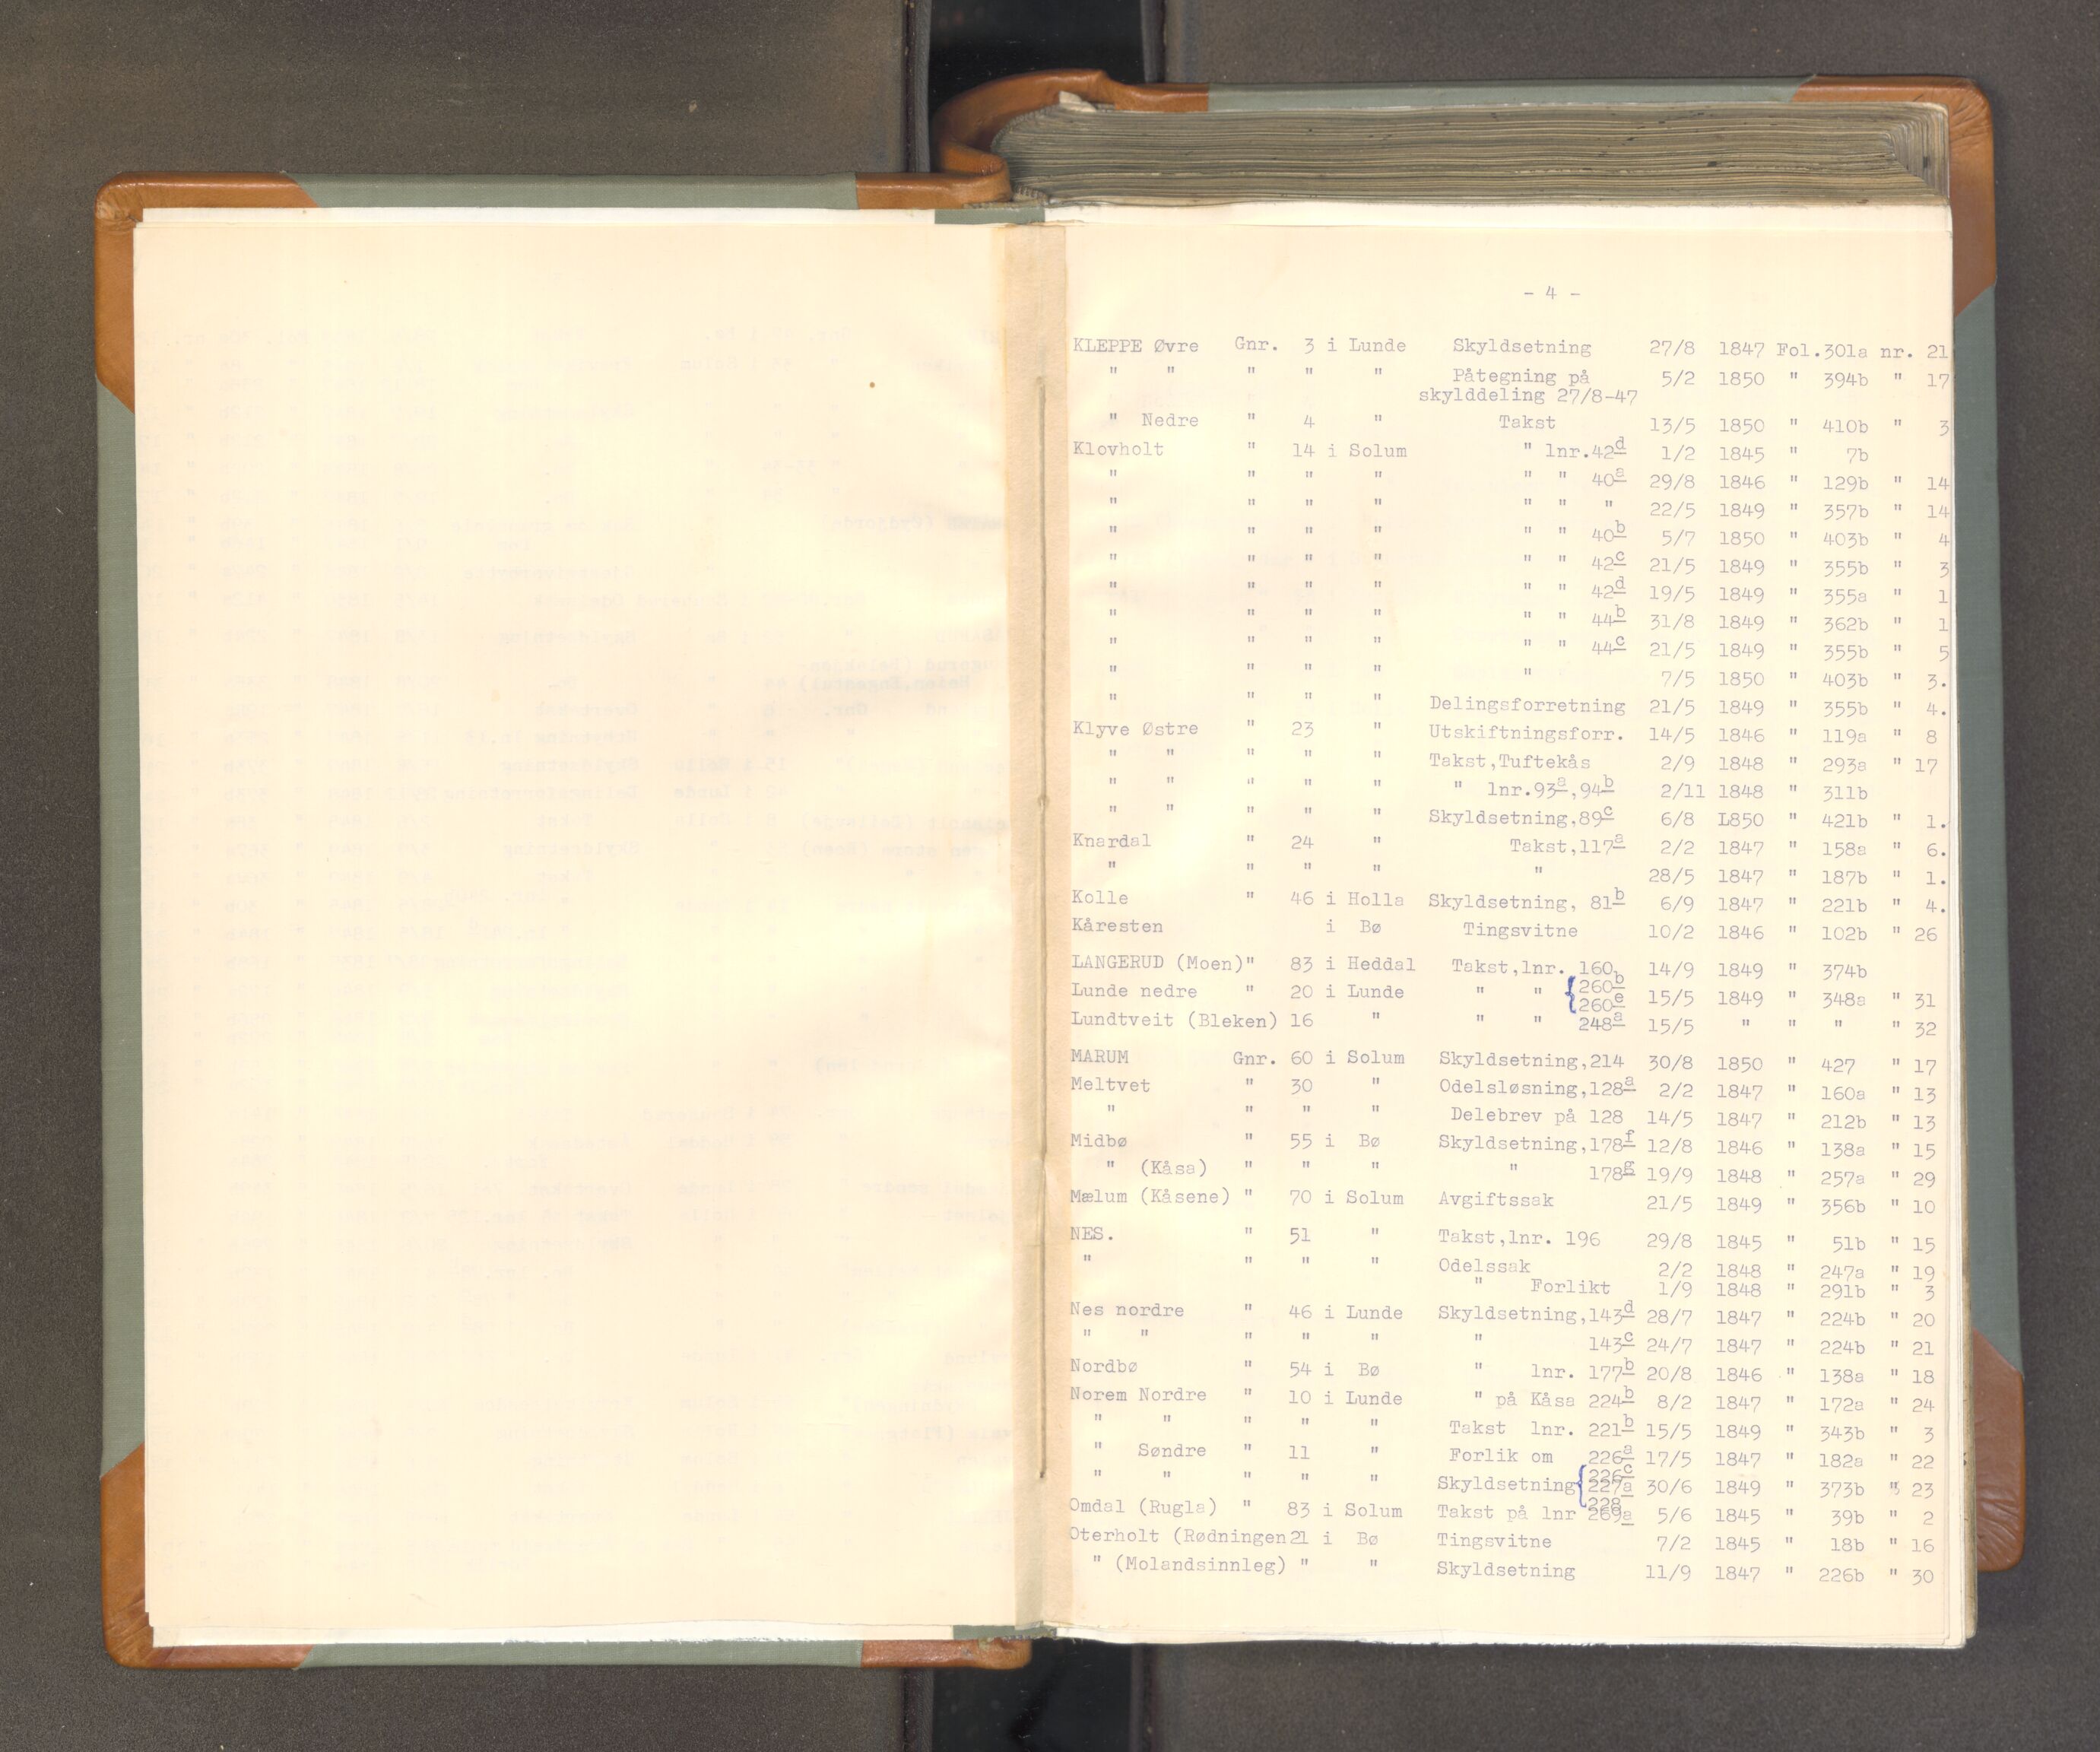 - 4 -
KLEPPE Øvre Gnr. 3 i Lunde Skyldsetning 27/8 1847 Fol.301a nr. 21
" " " " " Påtegning på 5/2 1850 " 394b " 17
skylddeling 27/8-47
" Nedre " 4 " Takst 13/5 1850 " 410b " 3
Klovholt " 14 i Solum " lnr.42d 1/2 1845 " 7b
" " " " " " 40a 29/8 1846 " 129b " 14
" " " " " " " 22/5 1849 " 357b " 14
" " " " " " 40b 5/7 1850 " 403b " 4
" " " " " " 42c 21/5 1849 " 355b " 3
" " " " " " 42d 19/5 1849 " 355a " 1
" " " " " " 44b 31/8 1849 " 362b " 1
" " " " " " 44c 21/5 1849 " 355b " 5
" " " " " 7/5 1850 " 403b " 3.
" " " " Delingsforretning 21/5 1849 " 355b " 4.
Klyve Østre " 23 " Utskiftningsforr. 14/5 1846 " 119a " 8
" " " " " Takst,Tuftekås 2/9 1848 " 293a " 17
" " " " " " lnr.93a,94b 2/11 1848 " 311b
" " " " " Skyldsetning,89c 6/8 L850 " 421b " 1.
Knardal " 24 " Takst,117a 2/2 1847 " 158a " 6.
" " " " " 28/5 1847 " 187b " 1.
Kolle " 46 i Holla Skyldsetning, 81b 6/9 1847 " 221b " 4.
Kåresten i Bø Tingsvitne 10/2 1846 " 102b " 26
LANGERUD (Moen)" 83 i Heddal Takst,lnr. 160 14/9 1849 " 374b
Lunde nedre " 20 i Lunde " " {260b 260e 15/5 1849 " 348a " 31
Lundtveit (Bleken) 16 " " " 248a 15/5 " " " " 32
MARUM Gnr. 60 i Solum Skyldsetning,214 30/8 1850 " 427 " 17
Meltvet " 30 " Odelsløsning,128a 2/2 1847 " 160a " 13
" " " " Delebrev på 128 14/5 1847 " 212b " 13
Midbø " 55 i Bø Skyldsetning,178f 12/8 1846 " 138a " 15
" (Kåsa) " " " " 178g 19/9 1848 " 257a " 29
Mælum (Kåsene) " 70 i Solum Avgiftssak 21/5 1849 " 356b " 10
NES. " 51 " Takst,lnr. 196 29/8 1845 " 51b " 15
" " " " Odelssak 2/2 1848 " 247a " 19
" Forlikt 1/9 1848 " 291b " 3
Nes nordre " 46 i Lunde Skyldsetning,143d 28/7 1847 " 224b " 20
" " " " " " 143c 24/7 1847 " 224b " 21
Nordbø " 54 i Bø " lnr. 177b 20/8 1846 " 138a " 18
Norem Nordre " 10 i Lunde " på Kåsa 224b 8/2 1847 " 172a " 24
" " " " " Takst lnr. 221b 15/5 1849 " 343b " 3
" Søndre " 11 " Forlik om 226a 17/5 1847 " 182a " 22
" " " " " Skyldsetning {226c 227a 228 30/6 1849 " 373b " 23
Omdal (Rugla) " 83 i Solum Takst på lnr 269a 5/6 1845 " 39b " 2
Oterholt (Rødningen 21 i Bø Tingsvitne 7/2 1845 " 18b " 16
" (Molandsinnleg) " " Skyldsetning 11/9 1847 " 226b " 30